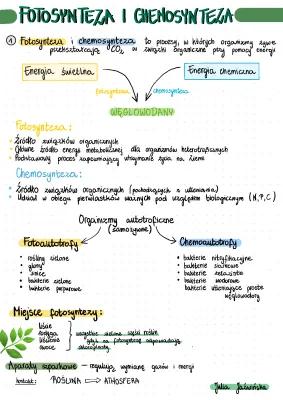 FOTOSYNTEZA I CHEMOSYNTEZA
① Fotosynteza i chemosynteza to procesy, w których organizmy żywe
przekształcają CO₂ w związki organiczne przy pomocy energii
Energia świetlna
Energia chemiczna
fotosynteza
chemosynteza
WĘGLOWODANY
Fotosynteza:
Źródło związków organicznych
Główne źródło energii metabolicznej dla organizmów heterotroficznych
Podstawowy proces zapewniający utrzymanie życia na ziemi
Chemosynteza:
Źródło związków organicznych (pochodzących z utleniania)
Udział w obiegu pierwiastków ważnych pod względem biologicznym (N, P, C)
Organizmy autotroficzne
(samożywne)
Fotoautotrofy
rośliny zielone
glony
sinice
bakterie zielone
bakterie purpurowe
Chemoautotrofy
bakterie nitryfikacyjne
bakterie siarkowe
bakterie żelaziste
bakterie wodorowe
bakterie utleniające proste
węglowodory
Miejsce fotosyntezy:
liście
łodyga
owoce
wszystkie zielone części roślin
gdyż za fotosyntezę odpowiadają
chloroplasty
Aparaty szparkowe – regulują wymianę gazów i energii
kontakt: ROŚLINA ATMOSFERA
Julia